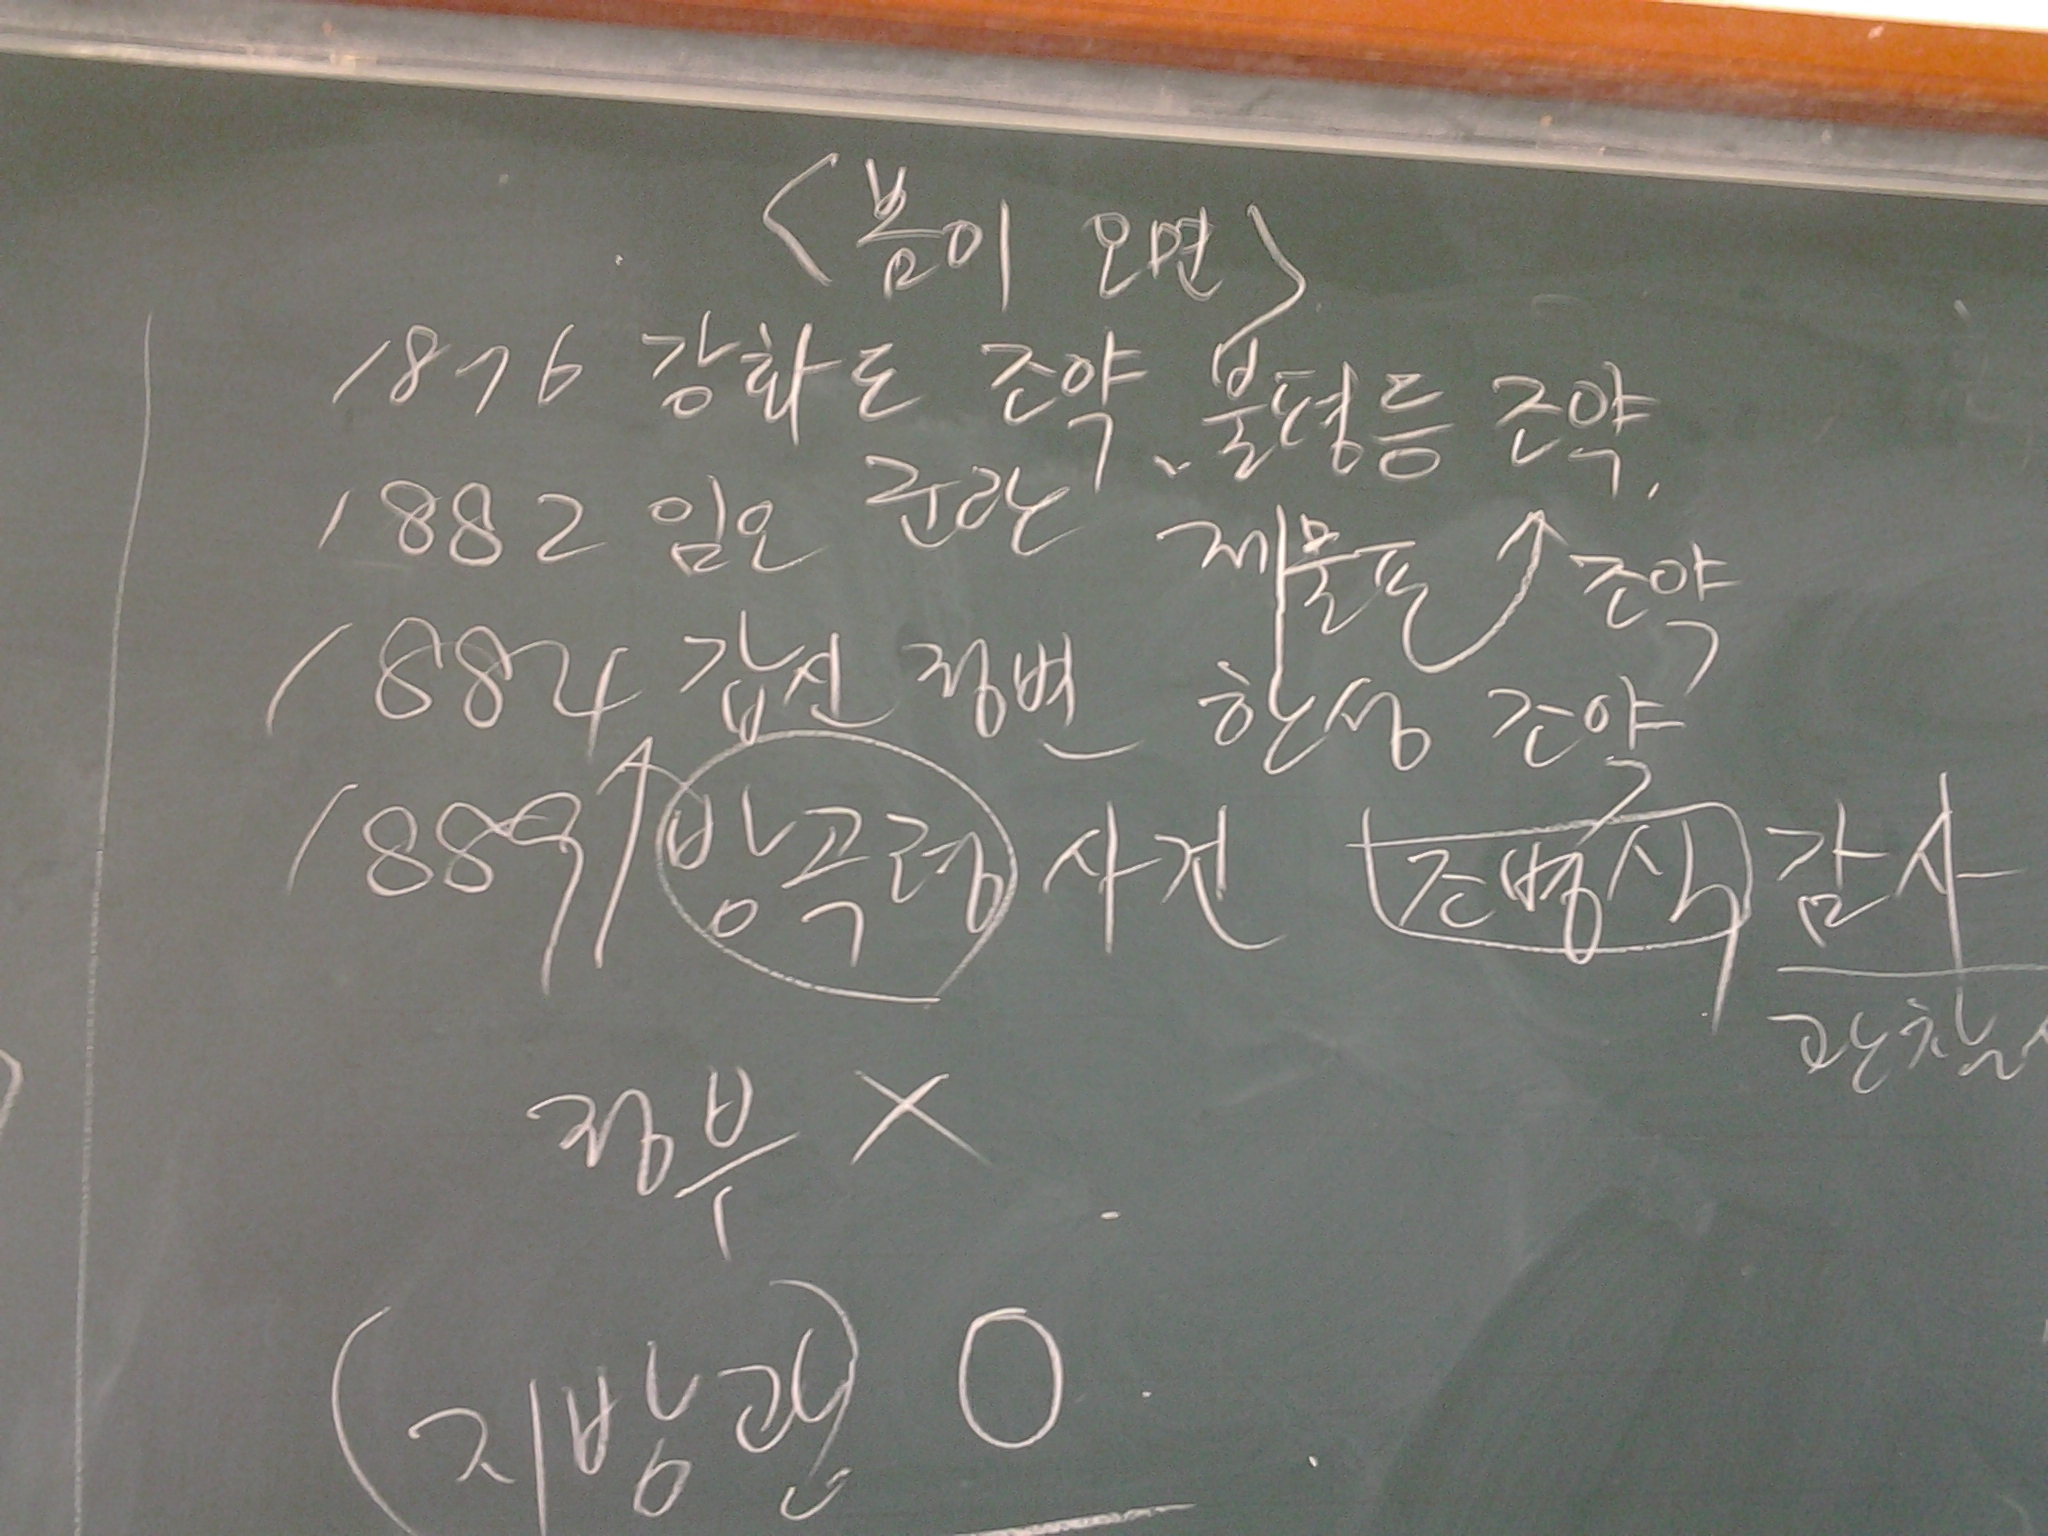 <봄이 오면>
1876 강화도 조약、불평등 조약.
1882 임오 군란 제물포 조약
1884 갑신 정변 한성 조약
1889 방곡령 사건 조병식 감사
관찰사
정부 ×
(지방관) O